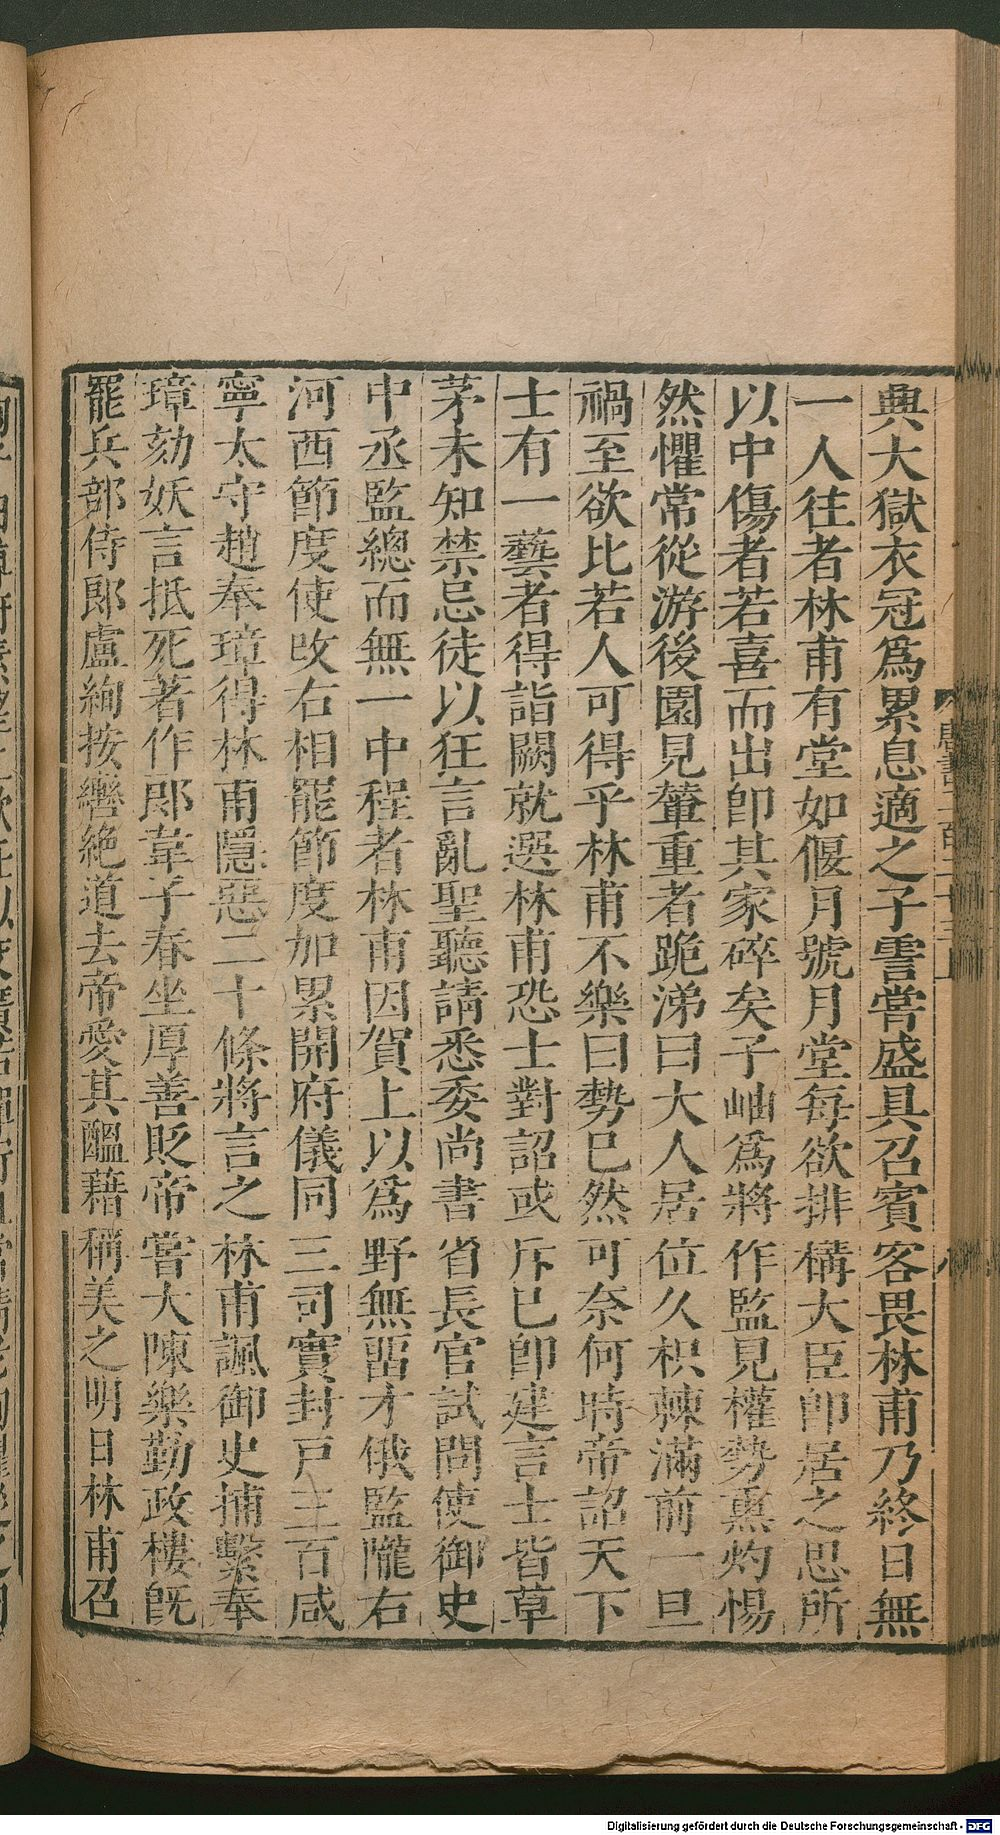 典大獄衣冠爲累息適之子霅嘗盛具召賓客畏林甫乃終日無
一人往者林甫有堂如偃月號月堂每欲排構大臣卽居之思所
以中傷者若喜而出卽其家碎矣子岫爲將作監見權勢熏灼惕
然懼常從游後園見輦重者跪涕曰大人居位久枳棘滿前一旦
禍至欲比若人可得乎林甫不樂曰勢已然可奈何時帝詔天下
士有一藝者得詣闕就選林甫恐士對詔或斥已卽建言士皆草
茅未知禁忌徒以狂言亂聖聽請悉委尚書省長官試問使御史
中丞監總而無一中程者林甫因賀上以爲野無畱才俄監隴右
河西節度使改右相罷節度加累開府儀同三司實封戸三百咸
寧太守趙奉璋得林甫隱惡二十條將言之林甫諷御史捕繫奉
璋劾妖言抵死著作郞韋子春坐厚善貶帝嘗大陳樂勤政樓旣
罷兵部侍郞盧絢按轡絶道去帝愛其醞藉稱美之明日林甫召
Digitalisierung gefördert durch die Deutsche Forschungsgemeinschaft - DFG